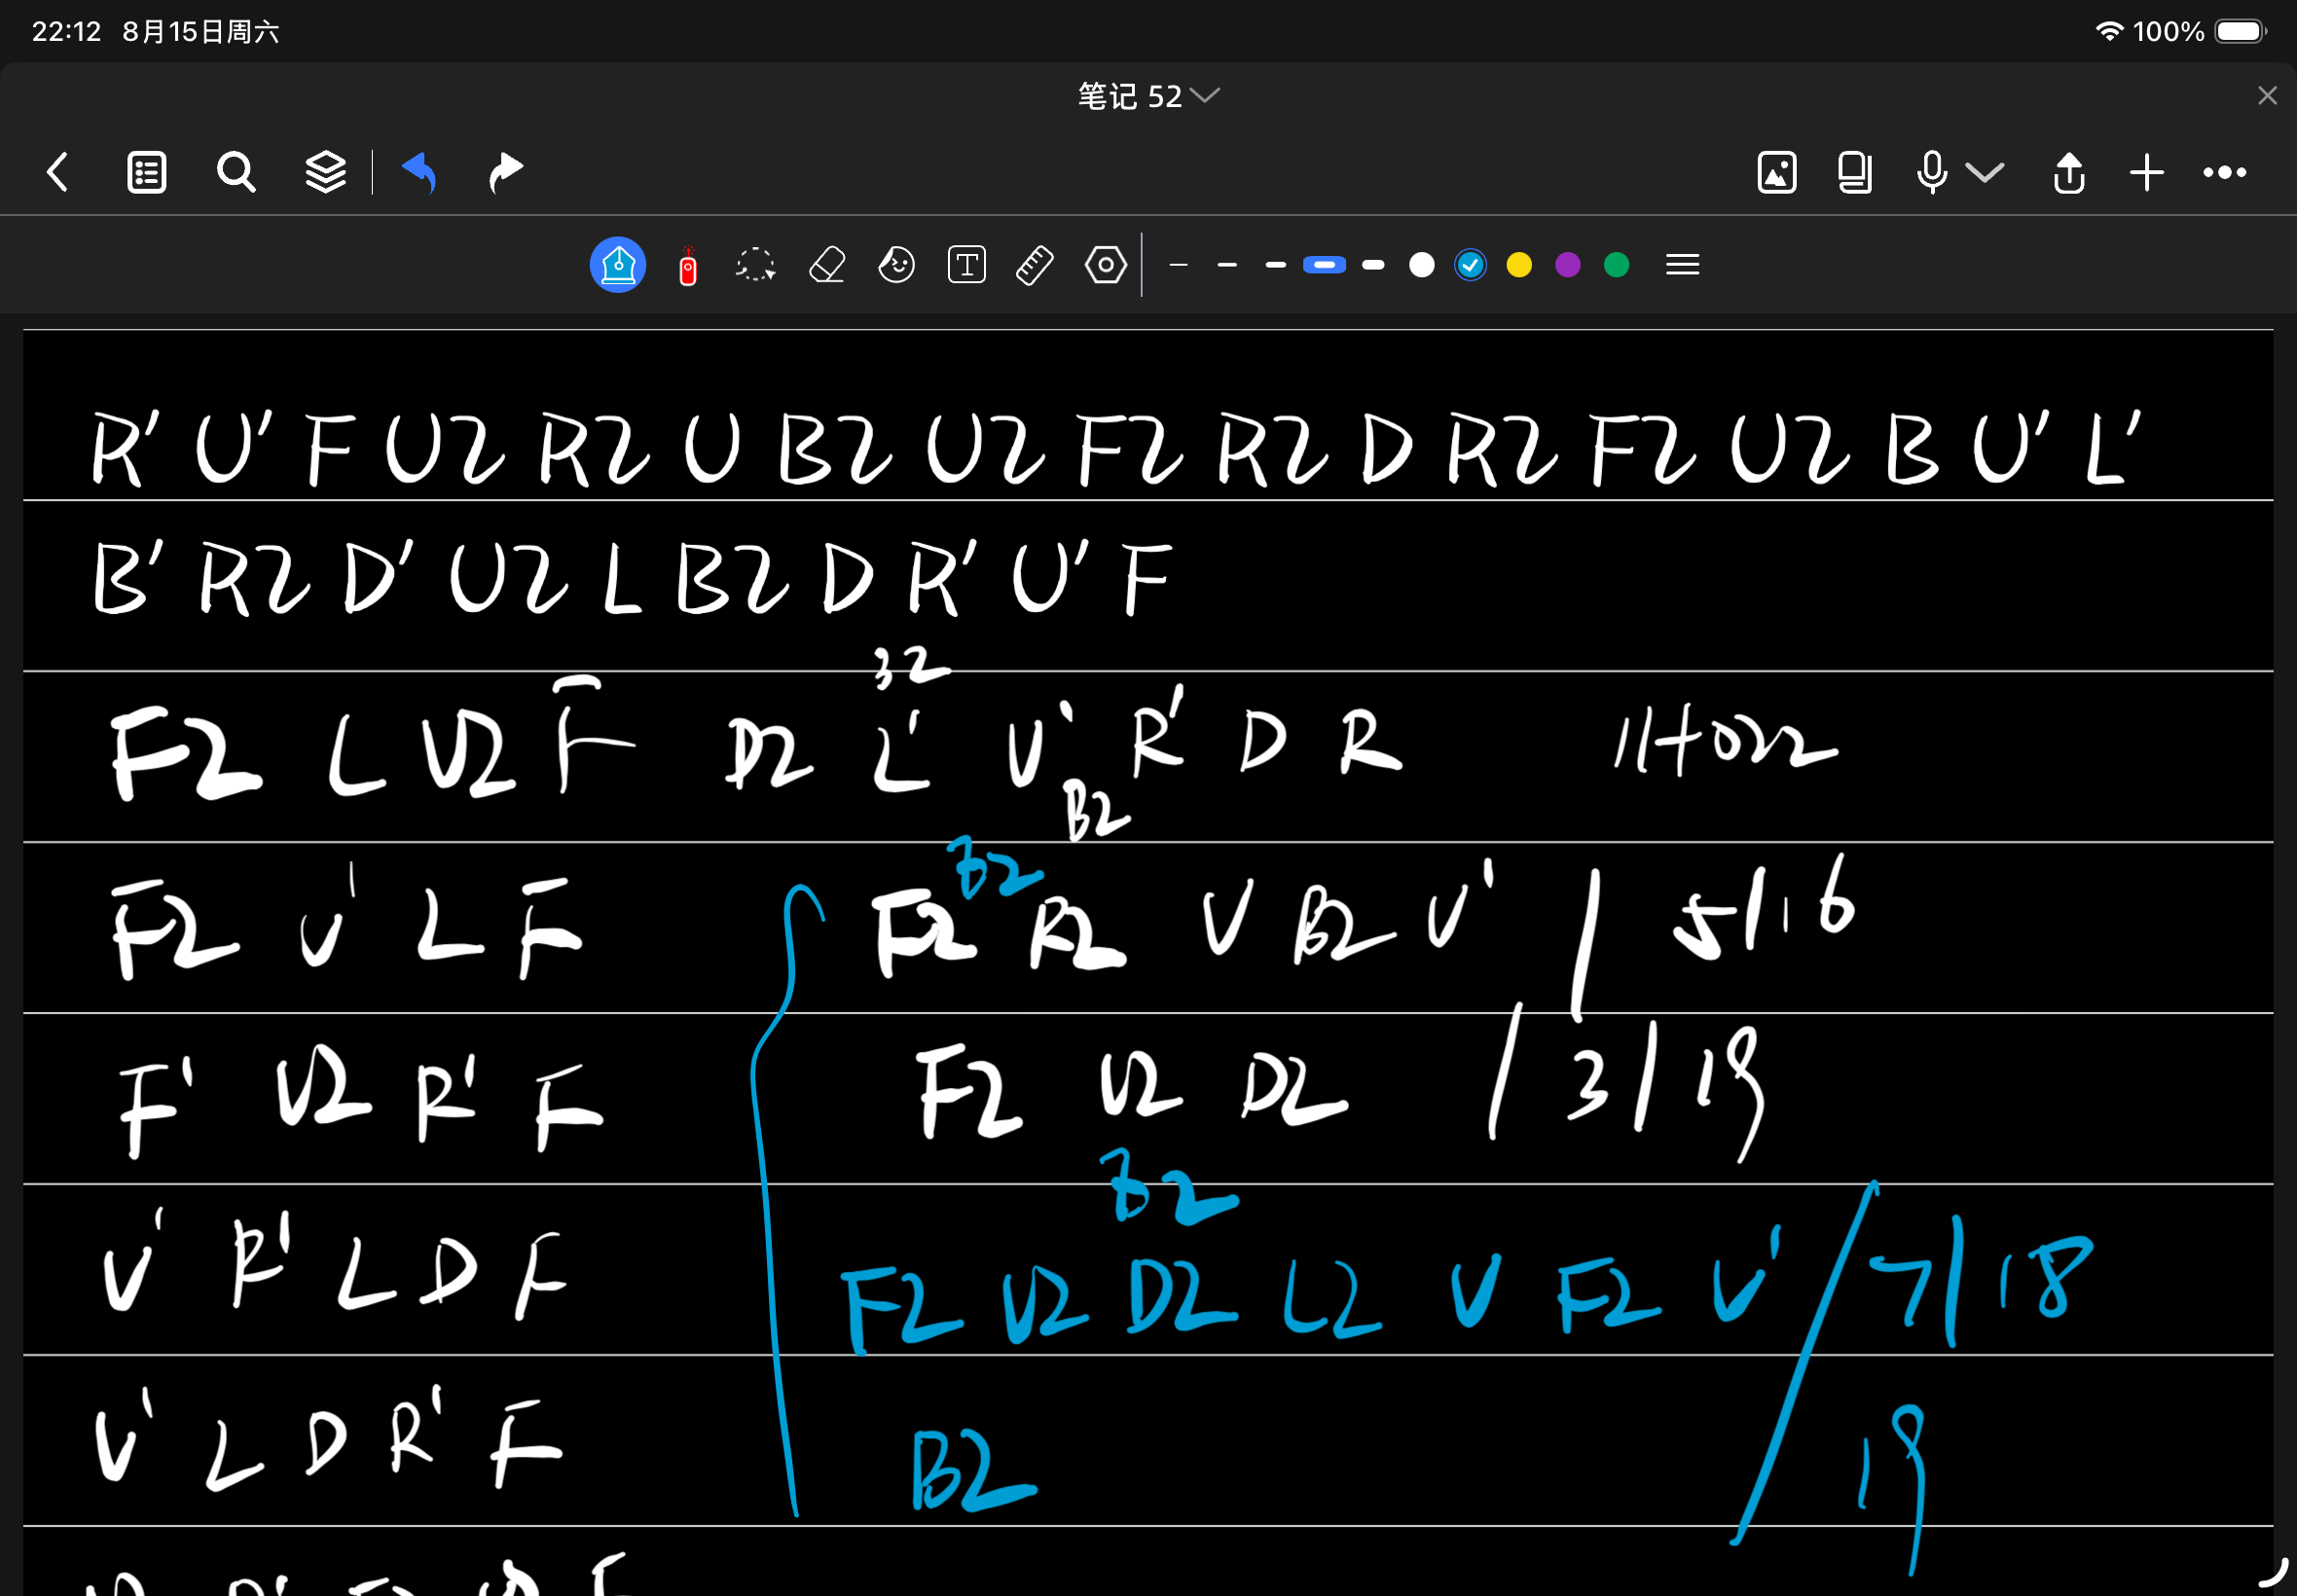 22:12 8月15日周六 100%
笔记 52
T
R' U' F U2 R2 U B2 U2 F2 R2 D R2 F2 U2 B U' L'
B' R2 D' U2 L B2 D R' U' F
F2 L U2 F D2 L' U' R' D R 11+022
B2
B2
F2 U' L F F2 R2 U B2 U' / 5/16
F' U2 R' F F2 U2 D2 / 3/19
B2
U' R' L D F F2 U2 D2 L2 U F2 U' / 7/18
U' L D R' F B2 19